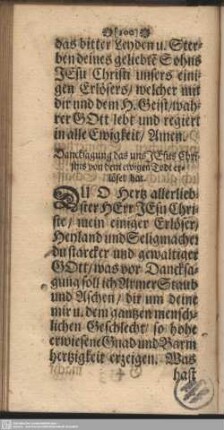 das bitter Leyden u. Ster-
ben deines geliebtē Sohns
JEsu Christi unsers eini-
gen Erlösers/ welcher mit
dir und dem H. Geist/ wah-
rer GOtt lebt und regiert
in alle Ewigkeit/ Amen.
Dancksagung das uns JEsus Chri-
stus von dem ewigen Todt er-
löset hat.
DU O Hertz allerlieb-
ster HErr JEsu Chri-
ste/ mein einiger Erlöser/
Heyland und Seligmacher
du starcker und gewaltiger
GOtt/ was vor Dancksa-
gung soll ich Armer Staub
und Aschen/ dir um deine
mir u. dem gantzen mensch-
lichen Geschlecht/ so hohe
erwiesene Gnad und Barm
hertzigkeit erzeigen. Was
hast